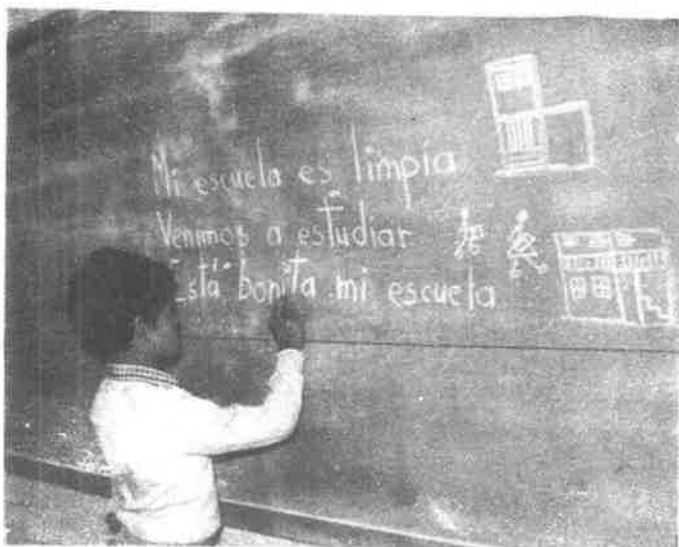 Mi escuela es limpia
Venimos a estudiar
Está bonita mi escuela